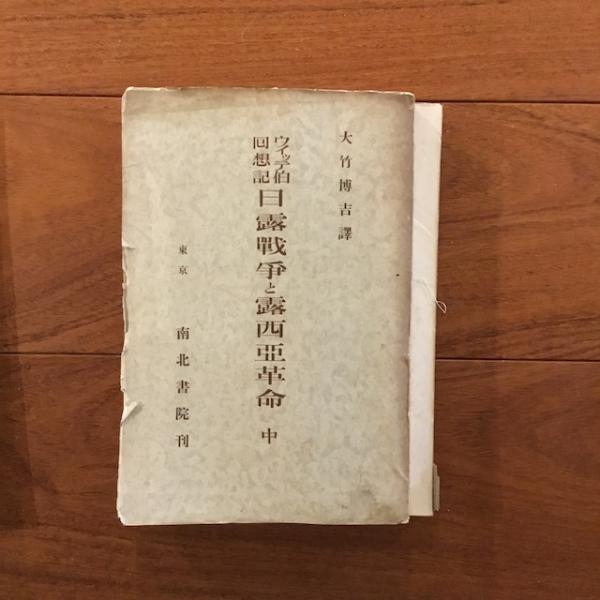 大竹博吉譯
ウイッテ伯
回想記
日露戰爭と露西亞革命 中
東京 南北書院刊